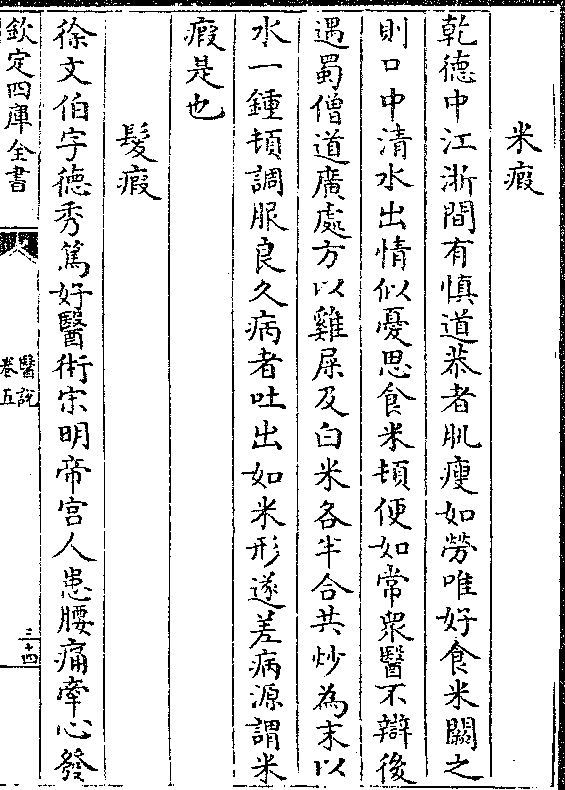 米瘕
乾德中江浙間有慎道恭者肌瘦如勞唯好食米闕之
則口中清水出情似憂思食米頓便如常衆醫不辯後
遇蜀僧道廣處方以雞屎及白米各半合共炒為末以
水一鍾頓調服良久病者吐出如米形遂差病源謂米
瘕是也
髮瘕
徐文伯字德秀篤好醫術宗明帝宮人患腰痛牽心發
欽定四庫全書
醫說
卷五
三十四